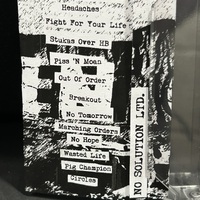 Headaches
Fight For Your Life
Stukas Over HB
Piss 'N Moan
Out Of Order
Breakout
No Tomorrow
Marching Orders
No Hope
Wasted Life
Pig Champion
Circles
NO SOLUTION LTD.